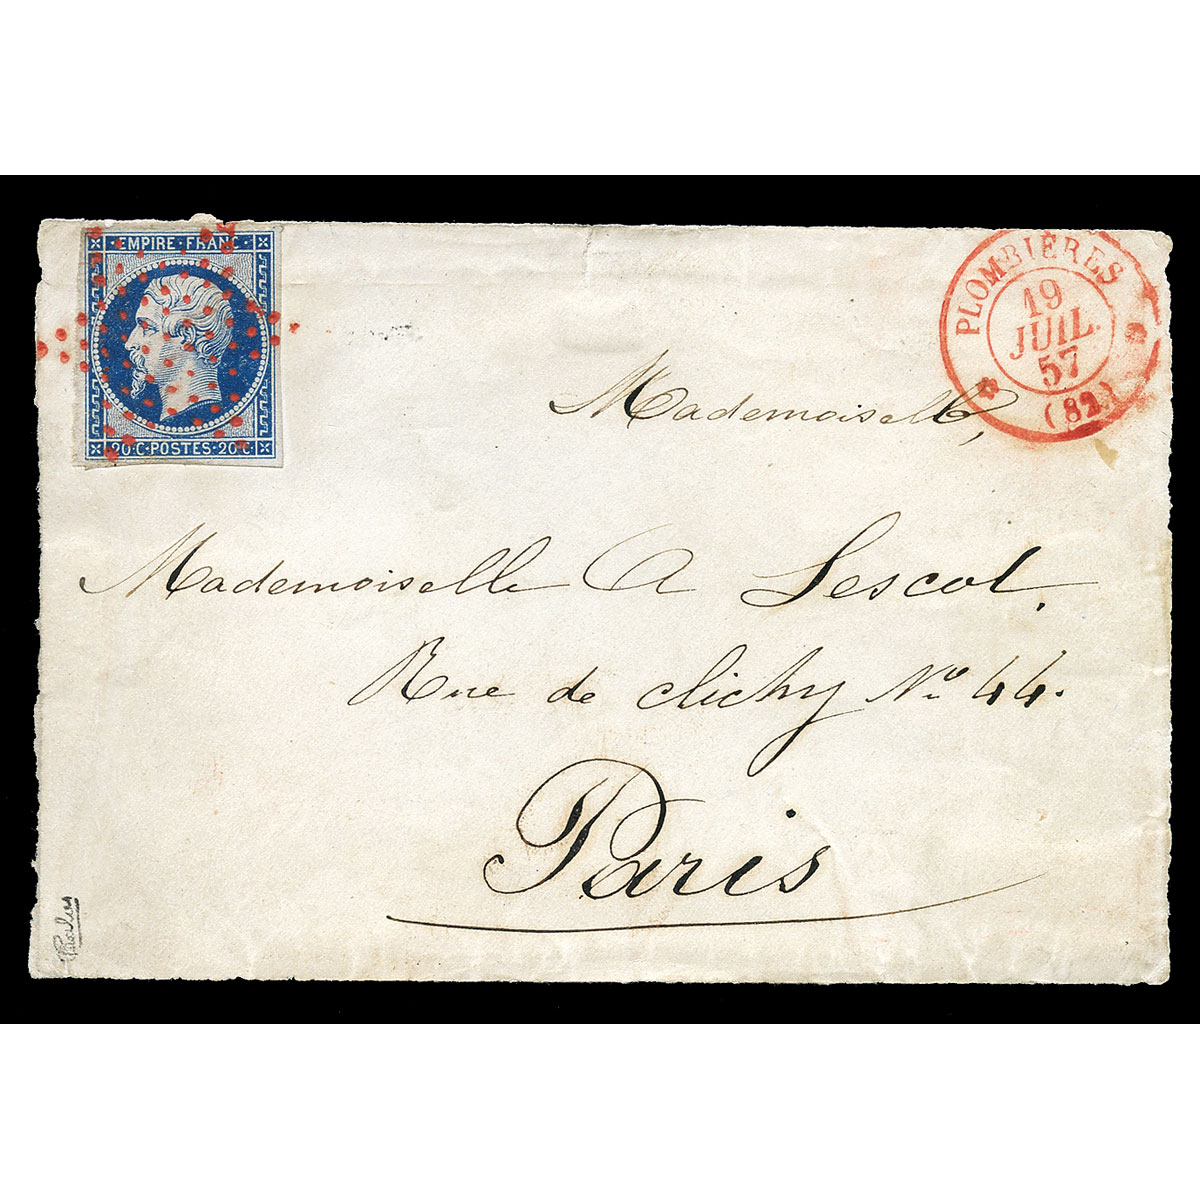 EMPIRE · FRANC
20·C·POSTES·20·C·
PLOMBIÈRES
19
JUIL.
57
(82)
Mademoiselle,
Mademoiselle A Lescot.
Rue de clichy No 44.
Paris